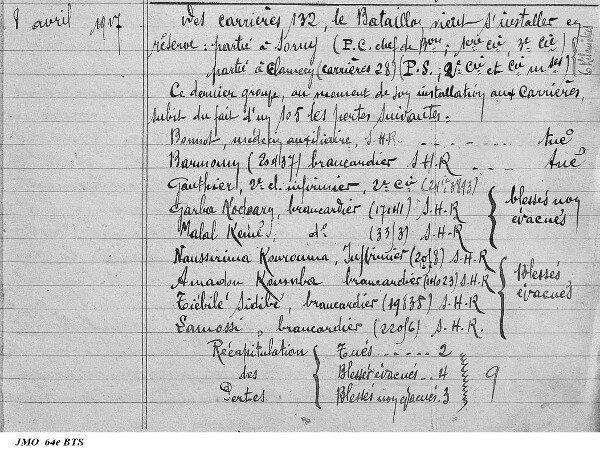 8 avril 1917
Des carrières 132, le Bataillon vient s'installer en
réserve : partie à Sorny (P.C. chef de Bon ; 1ère Cie 3e Cie)
partie à Clamecy (carrières 28) (P.S ; 2e Cie et Cie mses)
Ce dernier groupe, au moment de son installation aux carrières,
subit du fait d'un 105 les pertes suivantes.
Bonnot, médecin auxiliaire, S.H.R. _ . _ _ _ _ tué
Barmomy (20437) brancardier S.H.R _ _ _ . _ tué
Gauthier, 2e cl. infirmier, 2e Cie
Garba Kodoary, brancardier (17141) S.H.R
blessés non évacués
Malal Keïné, do (3313) S.H.R
Naussirima Kourouma, Infirmier (2018) S.H.R
Amadou Koumba brancardier (14023) S.H.R
Blessés évacués
Tiébilé Sidibé, brancardier (19835) S.H.R
Lamossi, brancardier (22016) S.H.R.
Récapitulation des Pertes
Tués ..... 2
Blessés évacués .. 4
Blessés non évacués . 3
9
JMO 64e BTS